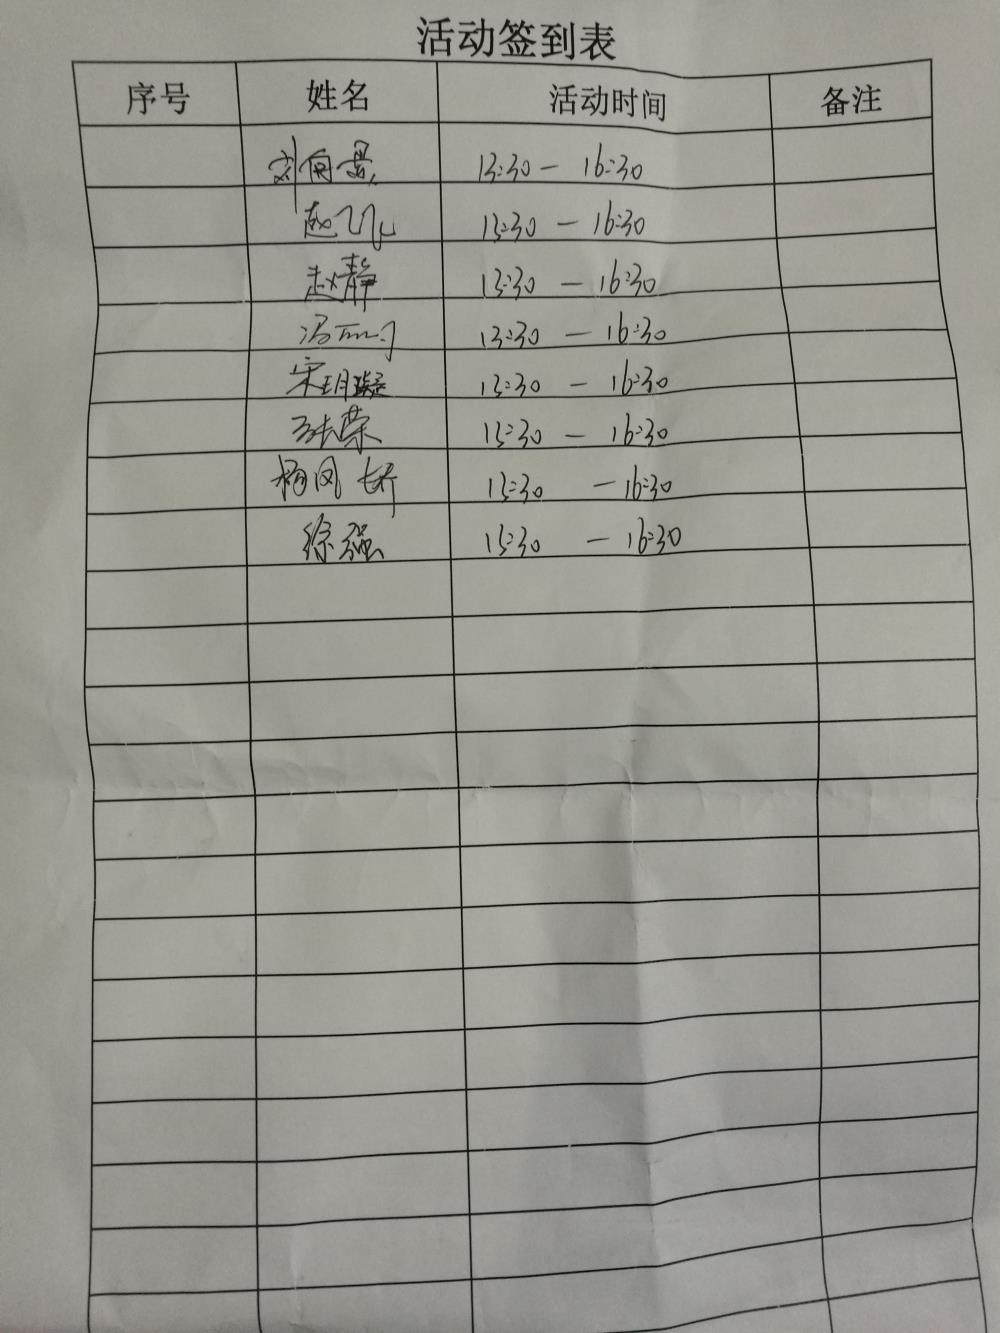 活动签到表
序号 姓名 活动时间 备注
刘向景 13:30 — 16:30
赵 13:30 — 16:30
赵静 13:30 — 16:30
冯丽 13:30 — 16:30
宋玥凝 13:30 — 16:30
张荣 13:30 — 16:30
杨凤娇 13:30 — 16:30
徐强 13:30 — 16:30